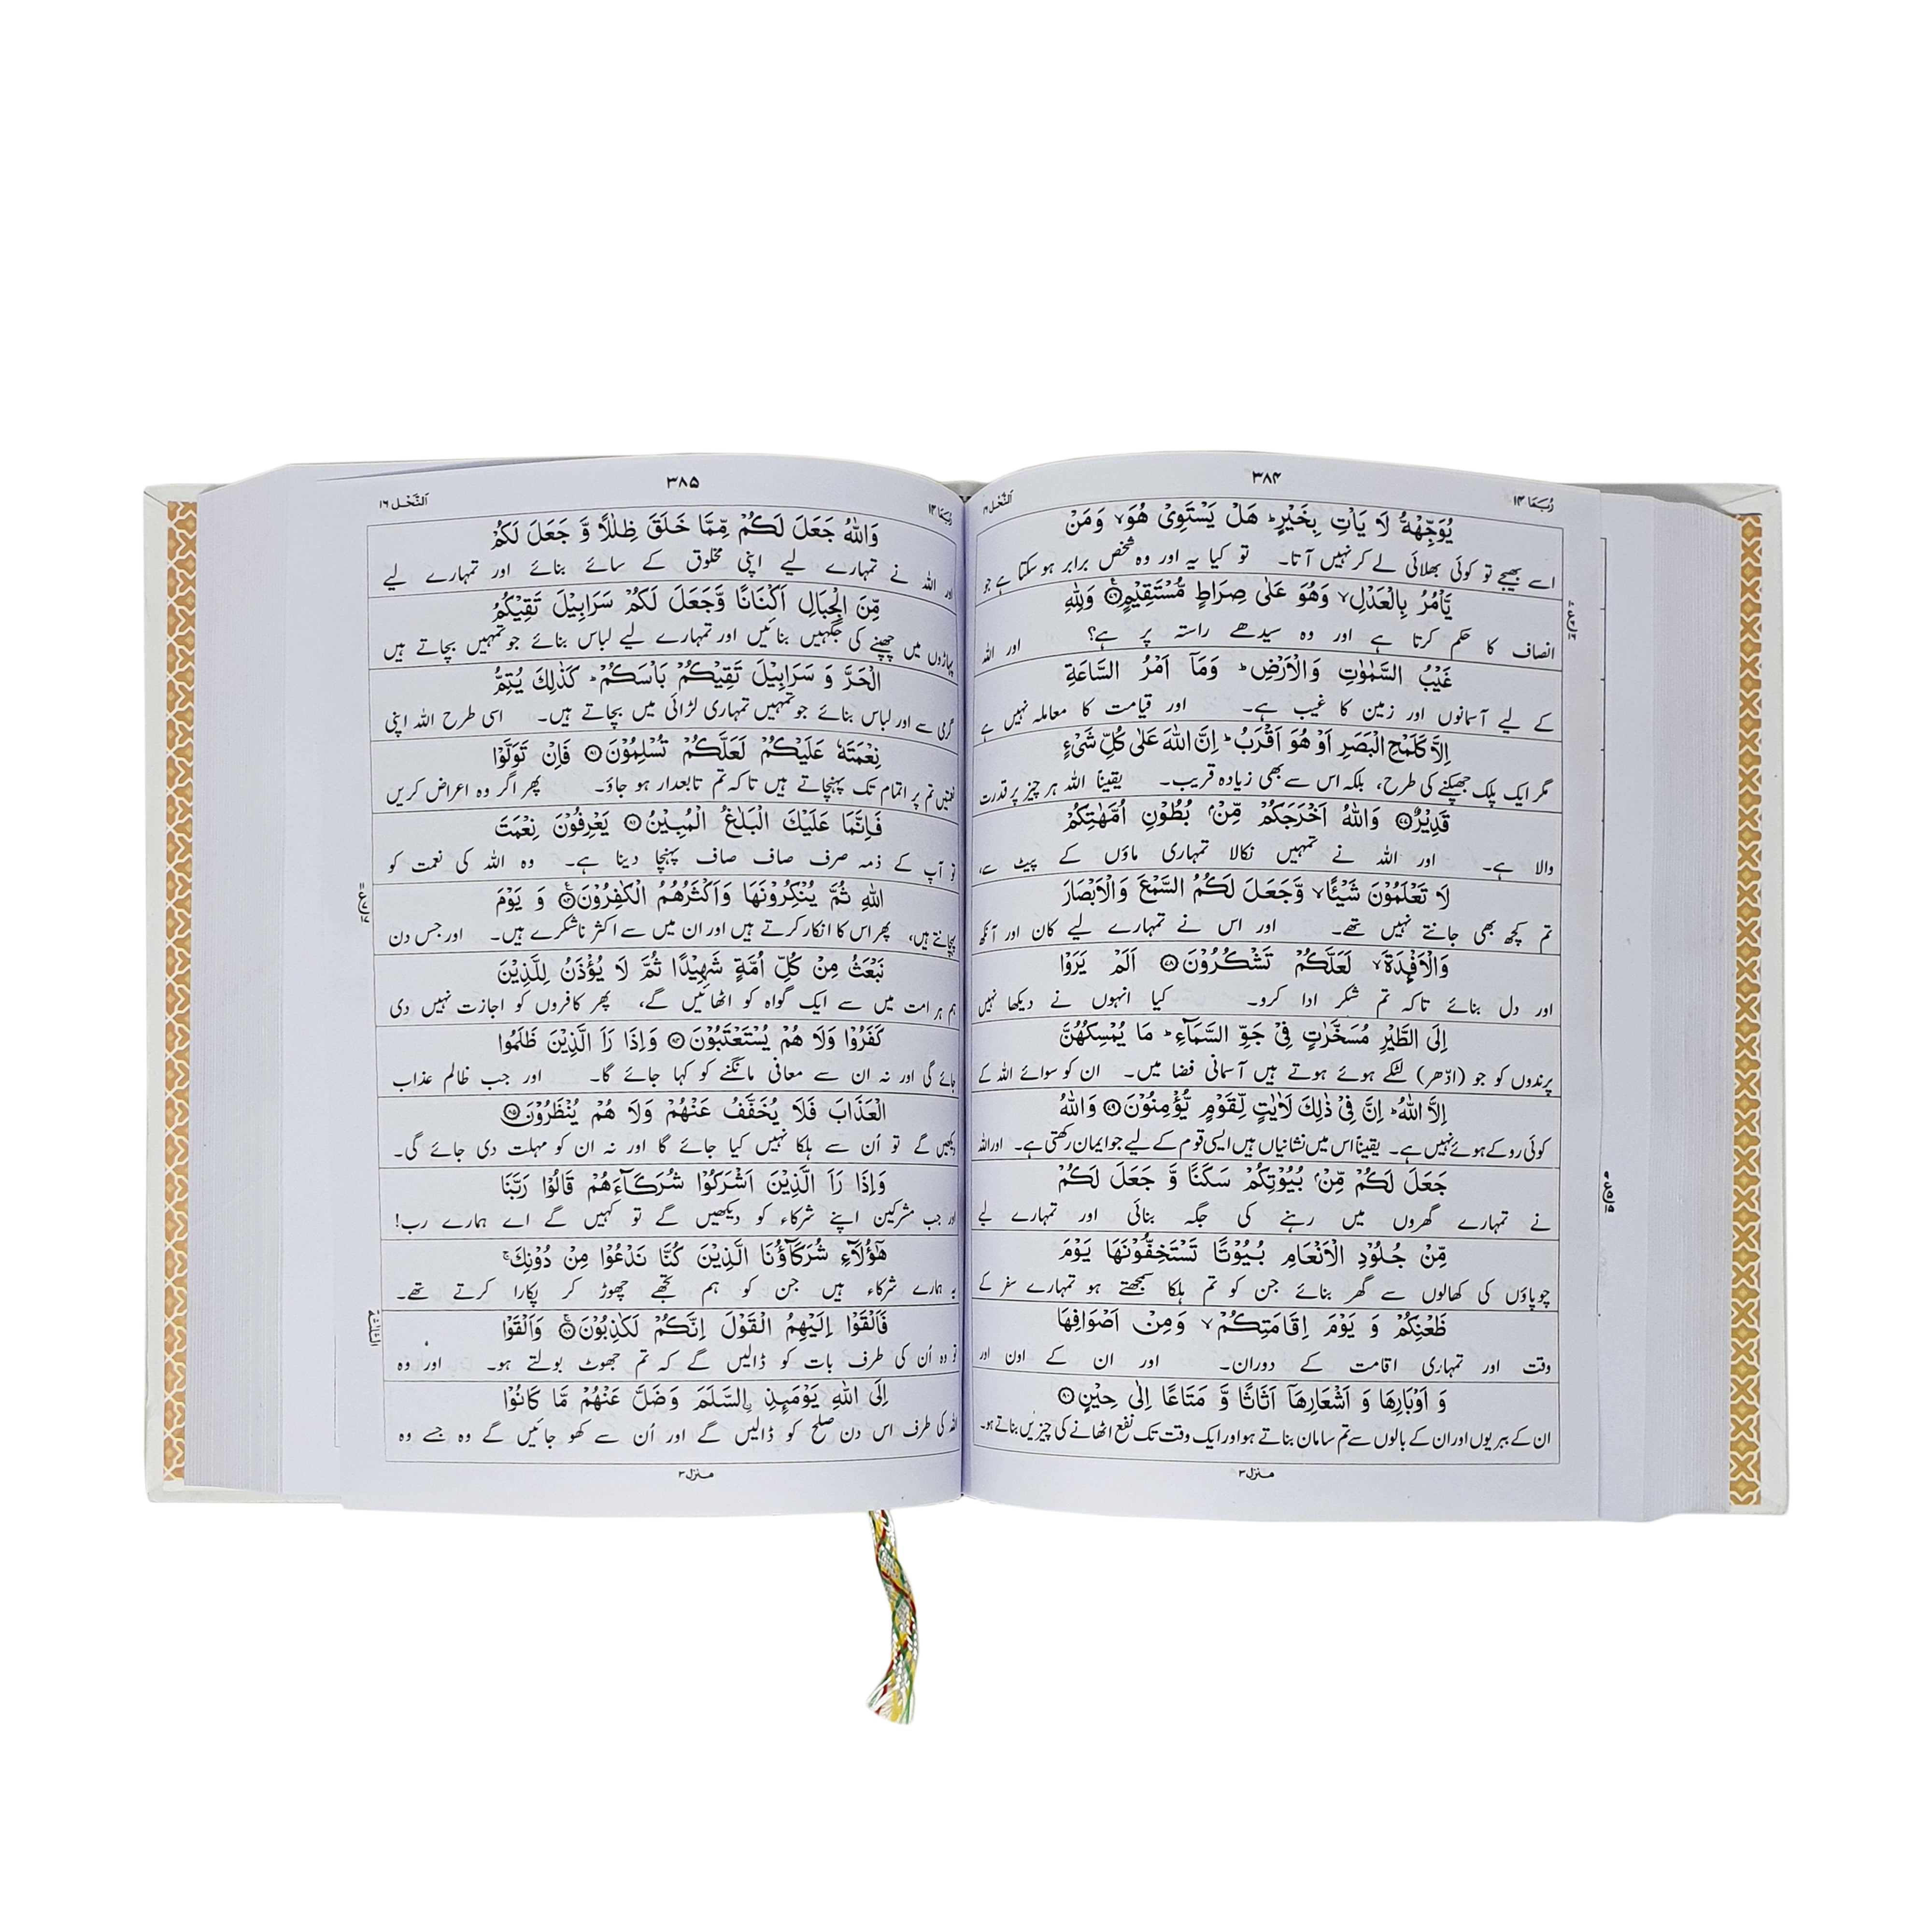 رُبَمَا ١٤
٣٨٤
اَلنَّحْل ١٦
يُوَجِّهْهُّ لَا يَاْتِ بِخَيْرٍ ؕ هَلْ يَسْتَوِيْ هُوَ ۙ وَمَنْ
اسے بھیجے تو کوئی بھلائی لے کر نہیں آتا۔ تو کیا یہ اور وہ شخص برابر ہو سکتا ہے جو
يَّاْمُرُ بِالْعَدْلِ ۙ وَهُوَ عَلٰى صِرَاطٍ مُّسْتَقِيْمٍ ۧ﴿٧٦﴾ وَلِلّٰهِ
انصاف کا حکم کرتا ہے اور وہ سیدھے راستہ پر ہے؟ اور اللہ
غَيْبُ السَّمٰوٰتِ وَالْاَرْضِ ؕ وَمَاۤ اَمْرُ السَّاعَةِ
کے لیے آسمانوں اور زمین کا غیب ہے۔ اور قیامت کا معاملہ نہیں ہے
اِلَّا كَلَمْحِ الْبَصَرِ اَوْ هُوَ اَقْرَبُ ؕ اِنَّ اللّٰهَ عَلٰى كُلِّ شَىْءٍ
مگر ایک پلک جھپکنے کی طرح، بلکہ اس سے بھی زیادہ قریب۔ یقیناً اللہ ہر چیز پر قدرت
قَدِيْرٌ ﴿٧٧﴾ وَاللّٰهُ اَخْرَجَكُمْ مِّنْۢ بُطُوْنِ اُمَّهٰتِكُمْ
والا ہے۔ اور اللہ نے تمہیں نکالا تمہاری ماؤں کے پیٹ سے،
لَا تَعْلَمُوْنَ شَيْـًٔا ۙ وَّجَعَلَ لَكُمُ السَّمْعَ وَالْاَبْصَارَ
تم کچھ بھی جانتے نہیں تھے۔ اور اس نے تمہارے لیے کان اور آنکھ
وَالْاَفْـِٕدَةَ ۙ لَعَلَّكُمْ تَشْكُرُوْنَ ﴿٧٨﴾ اَلَمْ يَرَوْا
اور دل بنائے تاکہ تم شکر ادا کرو۔ کیا انہوں نے دیکھا نہیں
اِلَى الطَّيْرِ مُسَخَّرٰتٍ فِيْ جَوِّ السَّمَآءِ ؕ مَا يُمْسِكُهُنَّ
پرندوں کو جو (ادّھر) لٹکے ہوئے ہوتے ہیں آسمانی فضا میں۔ ان کو سوائے اللہ کے
اِلَّا اللّٰهُ ؕ اِنَّ فِيْ ذٰلِكَ لَاٰيٰتٍ لِّقَوْمٍ يُّؤْمِنُوْنَ ﴿٧٩﴾ وَاللّٰهُ
کوئی روکے ہوئے نہیں ہے۔ یقیناً اس میں نشانیاں ہیں ایسی قوم کے لیے جو ایمان رکھتی ہے۔ اور اللہ
جَعَلَ لَكُمْ مِّنْۢ بُيُوْتِكُمْ سَكَنًا وَّ جَعَلَ لَكُمْ
نے تمہارے گھروں میں رہنے کی جگہ بنائی اور تمہارے لیے
مِّنْ جُلُوْدِ الْاَنْعَامِ بُيُوْتًا تَسْتَخِفُّوْنَهَا يَوْمَ
چوپاؤں کی کھالوں سے گھر بنائے جن کو تم ہلکا سمجھتے ہو تمہارے سفر کے
ظَعْنِكُمْ وَ يَوْمَ اِقَامَتِكُمْ ۙ وَمِنْ اَصْوَافِهَا
وقت اور تمہاری اقامت کے دوران۔ اور ان کے اون اور
وَ اَوْبَارِهَا وَ اَشْعَارِهَاۤ اَثَاثًا وَّ مَتَاعًا اِلٰى حِيْنٍ ﴿٨٠﴾
ان کے ببریوں اور ان کے بالوں سے تم سامان بناتے ہو اور ایک وقت تک نفع اٹھانے کی چیزیں بناتے ہو۔
منزل ٣
رُبَمَا ١٤
٣٨٥
اَلنَّحْل ١٦
وَاللّٰهُ جَعَلَ لَكُمْ مِّمَّا خَلَقَ ظِلٰلًا وَّ جَعَلَ لَكُمْ
اور اللہ نے تمہارے لیے اپنی مخلوق کے سائے بنائے اور تمہارے لیے
مِّنَ الْجِبَالِ اَكْنَانًا وَّجَعَلَ لَكُمْ سَرَابِيْلَ تَقِيْكُمُ
پہاڑوں میں چھپنے کی جگہیں بنائیں اور تمہارے لیے لباس بنائے جو تمہیں بچاتے ہیں
الْحَرَّ وَ سَرَابِيْلَ تَقِيْكُمْ بَاْسَكُمْ ؕ كَذٰلِكَ يُتِمُّ
گرمی سے اور لباس بنائے جو تمہیں تمہاری لڑائی میں بچاتے ہیں۔ اسی طرح اللہ اپنی
نِعْمَتَهٗ عَلَيْكُمْ لَعَلَّكُمْ تُسْلِمُوْنَ ﴿٨١﴾ فَاِنْ تَوَلَّوْا
نعمتیں تم پر اتمام تک پہنچاتے ہیں تاکہ تم تابعدار ہو جاؤ۔ پھر اگر وہ اعراض کریں
فَاِنَّمَا عَلَيْكَ الْبَلٰغُ الْمُبِيْنُ ﴿٨٢﴾ يَعْرِفُوْنَ نِعْمَتَ
تو آپ کے ذمہ صرف صاف صاف پہنچا دینا ہے۔ وہ اللہ کی نعمت کو
اللّٰهِ ثُمَّ يُنْكِرُوْنَهَا وَاَكْثَرُهُمُ الْكٰفِرُوْنَ ۧ﴿٨٣﴾ وَ يَوْمَ
پہچانتے ہیں، پھر اس کا انکار کرتے ہیں اور ان میں سے اکثر ناشکرے ہیں۔ اور جس دن
نَبْعَثُ مِنْ كُلِّ اُمَّةٍ شَهِيْدًا ثُمَّ لَا يُؤْذَنُ لِلَّذِيْنَ
ہم ہر امت میں سے ایک گواہ کو اٹھائیں گے، پھر کافروں کو اجازت نہیں دی
كَفَرُوْا وَلَا هُمْ يُسْتَعْتَبُوْنَ ﴿٨٤﴾ وَاِذَا رَاَ الَّذِيْنَ ظَلَمُوا
جائے گی اور نہ ان سے معافی مانگنے کو کہا جائے گا۔ اور جب ظالم عذاب
الْعَذَابَ فَلَا يُخَفَّفُ عَنْهُمْ وَلَا هُمْ يُنْظَرُوْنَ ﴿٨٥﴾
دیکھیں گے تو اُن سے ہلکا نہیں کیا جائے گا اور نہ ان کو مہلت دی جائے گی۔
وَاِذَا رَاَ الَّذِيْنَ اَشْرَكُوْا شُرَكَآءَهُمْ قَالُوْا رَبَّنَا
اور جب مشرکین اپنے شرکاء کو دیکھیں گے تو کہیں گے اے ہمارے رب!
هٰٓؤُلَآءِ شُرَكَآؤُنَا الَّذِيْنَ كُنَّا نَدْعُوْا مِنْ دُوْنِكَ ۚ
یہ ہمارے شرکاء ہیں جن کو ہم تجھے چھوڑ کر پکارا کرتے تھے۔
فَاَلْقَوْا اِلَيْهِمُ الْقَوْلَ اِنَّكُمْ لَكٰذِبُوْنَ ۚ﴿٨٦﴾ وَاَلْقَوْا
تو وہ اُن کی طرف بات کو ڈالیں گے کہ تم جھوٹ بولتے ہو۔ اور وہ
اِلَى اللّٰهِ يَوْمَىِٕذِ ِۨالسَّلَمَ وَضَلَّ عَنْهُمْ مَّا كَانُوْا
اللہ کی طرف اس دن صلح کو ڈالیں گے اور اُن سے کھو جائیں گے وہ جسے وہ
منزل ٣